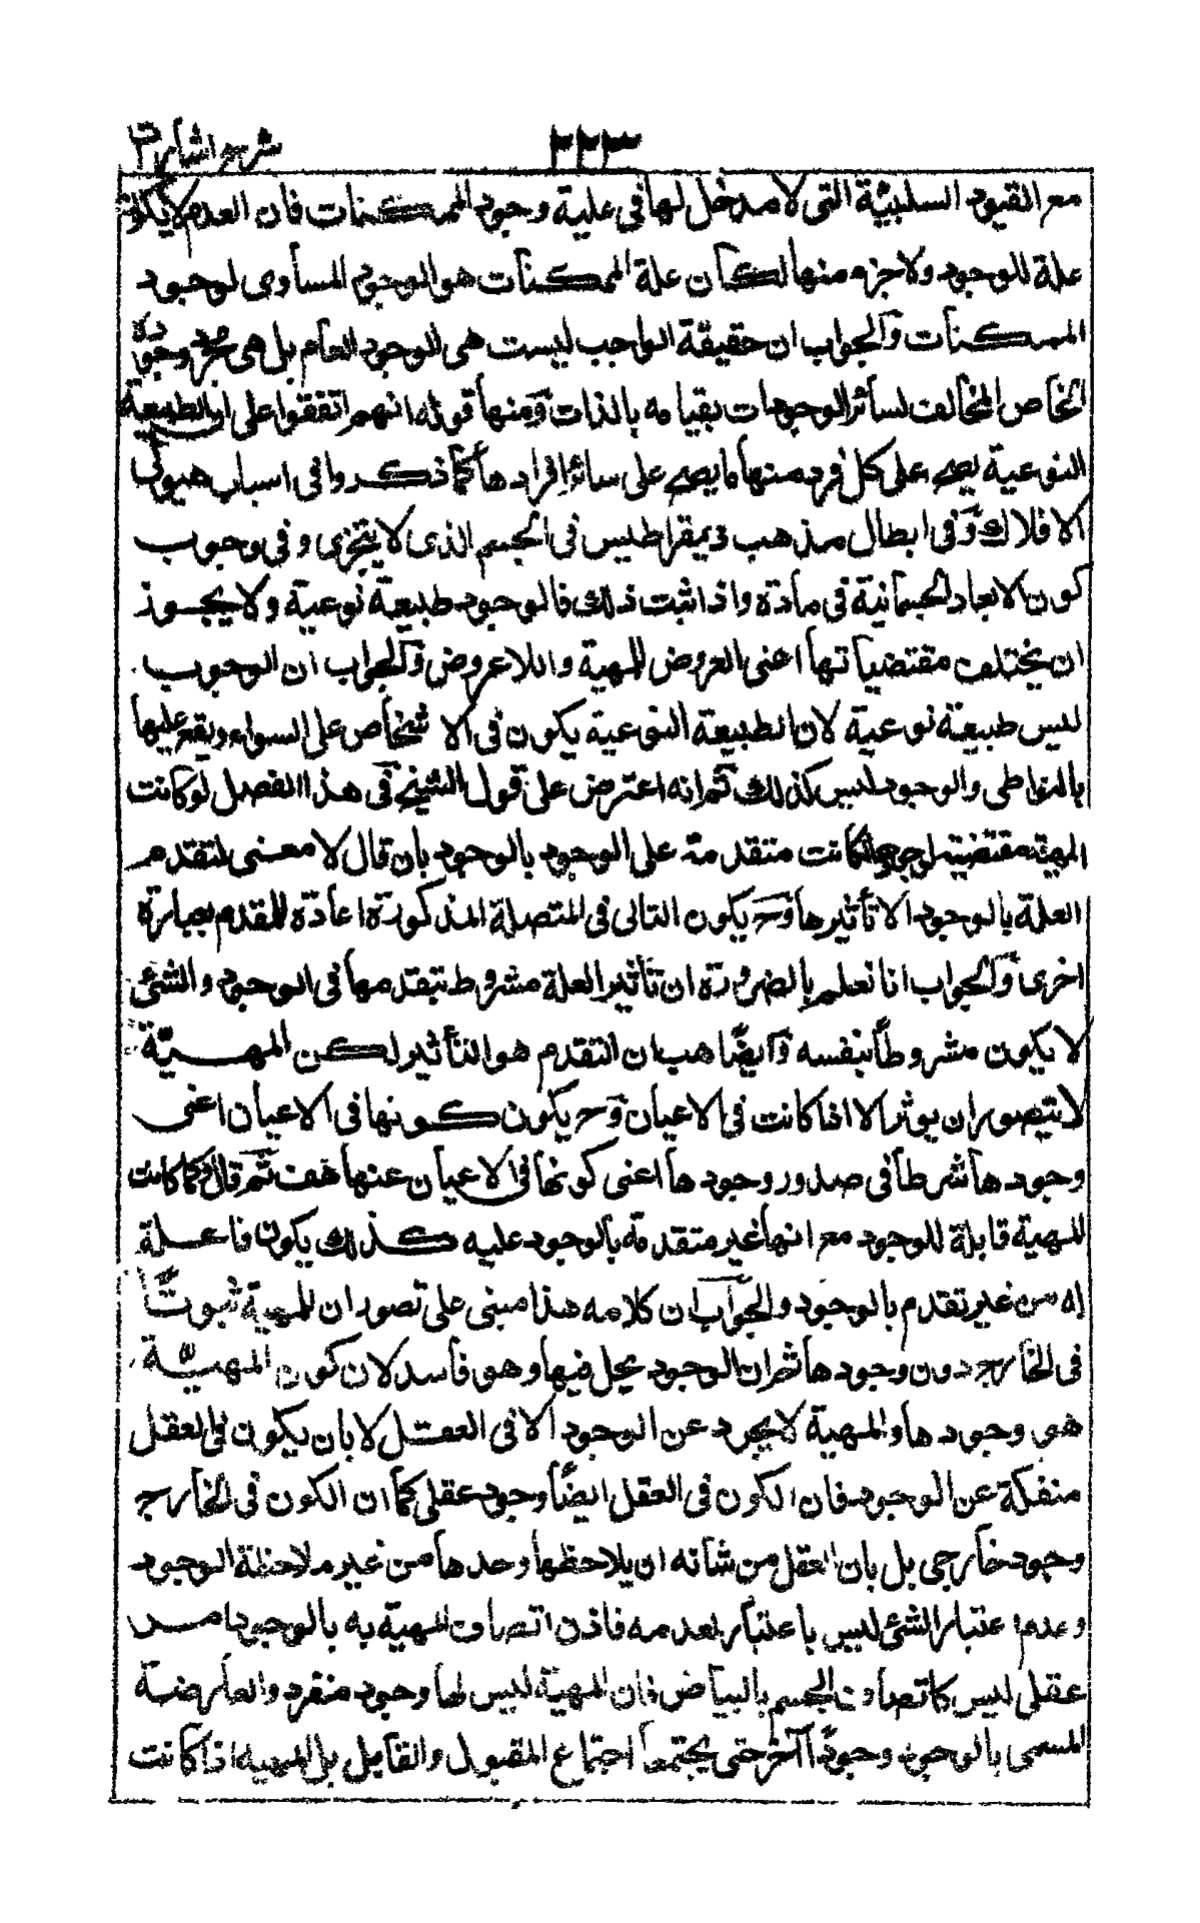 شرح اشارات ٣٣٣
مع القيود السلبية التى لا مدخل لها فى علية وجود الممكنات فان العدم لا يكون
علة للوجود ولا جزء منها لكان علة الممكنات هو الوجود المساوى لوجود
الممكنات والجواب ان حقيقة الواجب ليست هى الوجود العام بل هى مجرد وجوده
الخاص المخالف لسائر الوجودات بقيامه بالذات ومنها قوله انهم اتفقوا على ان الطبيعة
النوعية يصح على كل فرد منها ما يصح على سائر افرادها كما ذكروا فى اسباب هيولى
الافلاك وفى ابطال مذهب ذيمقراطيس فى الجسم الذى لا يتجزى وفى وجوب
كون الابعاد الجسمانية فى مادة واذا ثبت ذلك فالوجود طبيعة نوعية ولا يجوز
ان يختلف مقتضياتها اعنى العروض للمهية واللاعروض والجواب ان الوجوب
ليس طبيعة نوعية لان الطبيعة النوعية يكون فى الاشخاص على السواء ويقع عليها
بالتواطى والوجود ليس كذلك ثم انه اعترض على قول الشيخ فى هذا الفصل لو كانت
المهية مقتضية لوجودها لكانت متقدمة على الوجود بالوجود بان قال لا معنى لتقدم
العلة بالوجود الا تأثيرها وح يكون التالى فى المتصلة المذكورة اعادة للمقدم بعبارة
اخرى والجواب انا نعلم بالضرورة ان تأثير العلة مشروط بتقدمها فى الوجود والشئ
لا يكون مشروطاً بنفسه وايضًا هب ان التقدم هو التأثير لكن المهيّة
لا يتصور ان يوثر الا اذا كانت فى الاعيان وح يكون كونها فى الاعيان اعنى
وجودها شرطاً فى صدور وجودها اعنى كونها فى الاعيان عنها هف ثم قال وكما كانت
المهية قابلة للوجود مع انها غير متقدمة بالوجود عليه كذلك يكون فاعلة
له من غير تقدم بالوجود والجواب ان كلامه هذا مبنى على تصور ان للمهية ثبوتًا
فى الخارج دون وجودها ثم ان الوجود يحل فيها وهو فاسد لان كون المهيّة
هو وجودها والمهية لا يجرد عن الوجود الا فى العقل لا بان يكون فى العقل
منفكة عن الوجود فان الكون فى العقل ايضًا وجود عقلى كما ان الكون فى الخارج
وجود خارجى بل بان العقل من شأنه ان يلاحظها وحدها من غير ملاحظة الوجود
وعدم اعتبار الشئ ليس باعتبار لعدمه فاذن اتصاف المهية به بالوجود امر
عقلى ليس كاتصاف الجسم بالبياض فان المهية ليس لها وجود منفرد والعارضية
المسمى بالوجود وجودًا آخر حتى يجتمعا اجتماع المقبول والقابل بل المهية اذا كانت